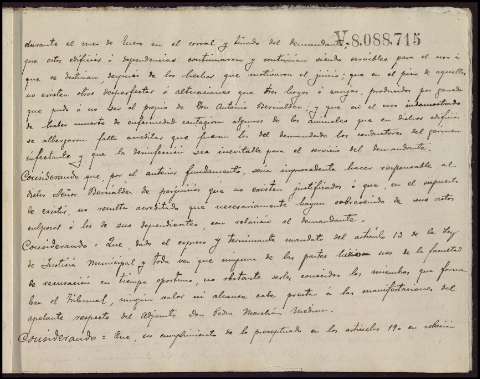 V.8.088.715
durante el mes de Enero en el corral y tinado del demandante,
que estos edificios ó dependencias continuaron y continúan siendo servibles para el uso á
que se destinan después de los hechos que motivaron el juicio; que en el piso de aquellos
no existen otros desperfectos ó alteraciones que tres hoyos ó surcos, producidos por ganado
que pudo ó no ser el propio de Don Antonio Bernaldez; y que ni el uso indemostrado
de haber muerto de enfermedad contagiosa algunos de los animales que en dichos edificios
se albergaron falta acreditar que fueran los del demandado los conductores del germen
infectante, y que la desinfección sea inevitable para el servicio del demandante.
Considerando que, por el anterior fundamento, sería improcedente hacer responsable al
dicho Señor Bernaldez de perjuicios que no existen justificados ó que, en el supuesto
de existir, no resulta acreditado que necesariamente hayan sobrevenido de sus actos
culposos ó los de sus dependientes, con relación al demandante.
Considerando = Que, dado el expreso y terminante mandato del artículo 13 de la Ley
de Justicia Municipal y toda vez que ninguna de las partes hicieron uso de la facultad
de recusación en tiempo oportuno, no obstante serles conocidos los miembros que forma
ban el Tribunal, ningún valor ni alcance cabe prestar á las manifestaciones del
apelante respecto del Adjunto Don Pedro
Considerando = Que, en cumplimiento de lo preceptuado en los artículos 19 en relación